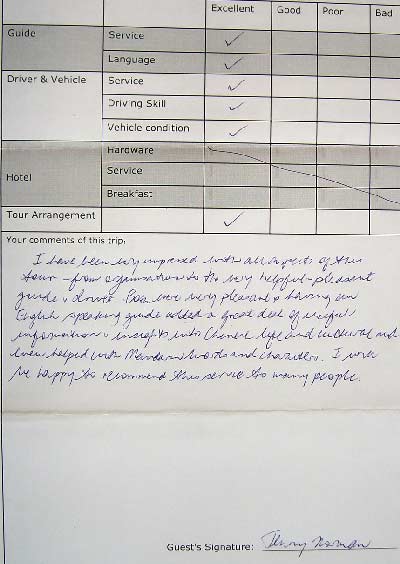 Excellent Good Poor Bad
Guide Service
Language
Driver & Vehicle Service
Driving Skill
Vehicle condition
Hotel Hardware
Service
Breakfast
Tour Arrangement
Your comments of this trip:
I have been very impressed with all aspects of this
tour - from organisation to the very helpful - pleasant
guide & driver. Both were very pleasant & having an
English speaking guide added a great deal of useful
information & insights into Chinese life and culture and
even helped with Mandarin words and characters. I would
be happy to recommend this service to many people.
Guest's Signature: